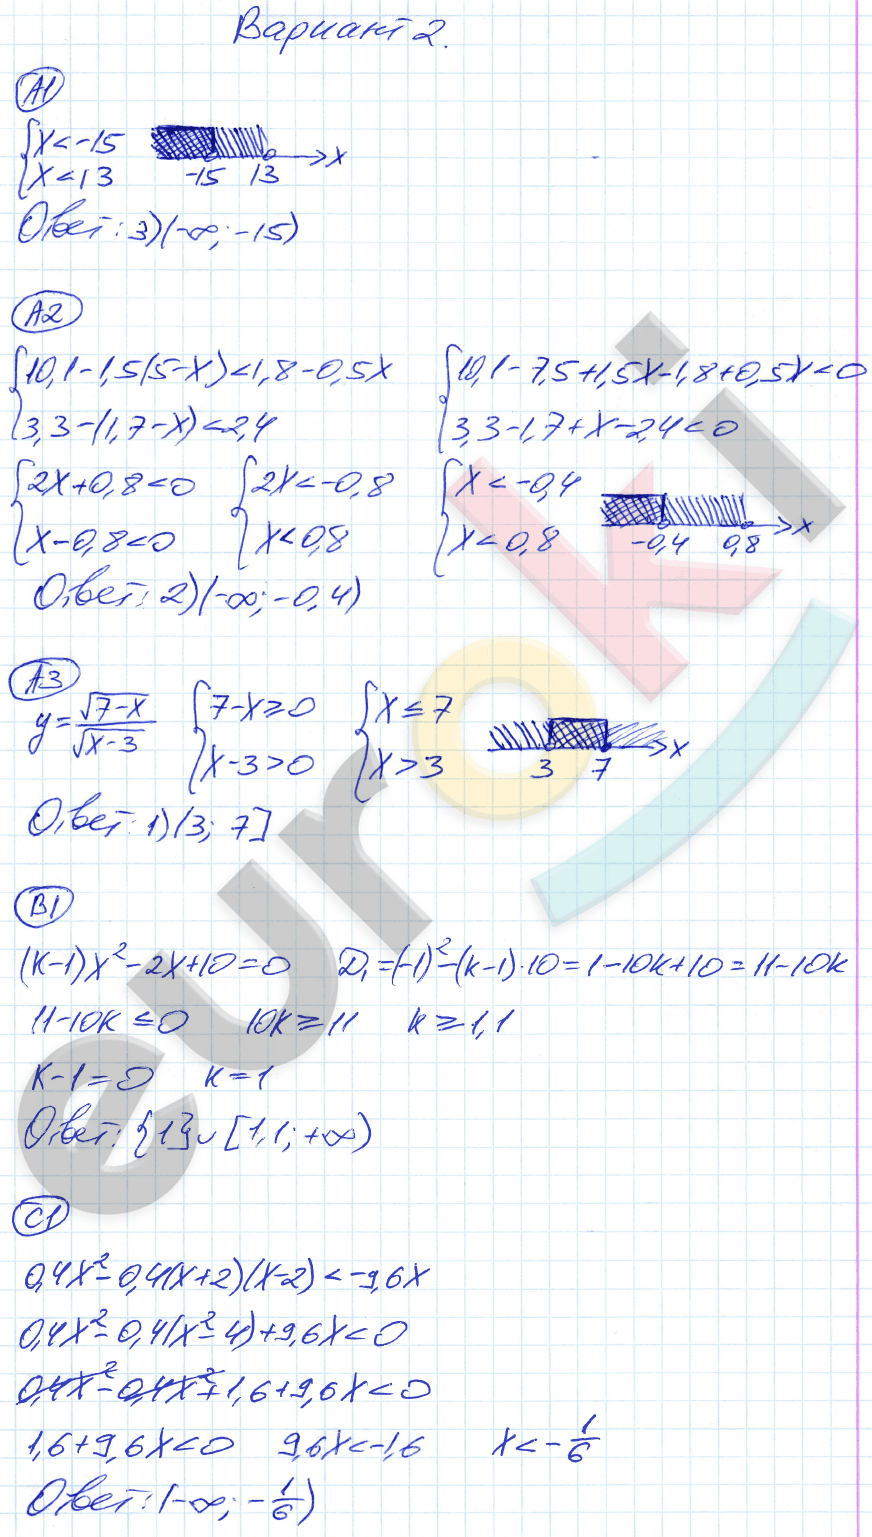 Вариант 2.
А1
{x < -15
{x < 13
-15 13 x
Ответ: 3) (-∞; -15)
А2
{10,1-1,5(5-x)<1,8-0,5x {10,1-7,5+1,5x-1,8+0,5x<0
{3,3-(1,7-x)<2,4 {3,3-1,7+x-2,4<0
{2x+0,8<0 {2x<-0,8 {x<-0,4
{x-0,8<0 {x<0,8 {x<0,8
-0,4 0,8 x
Ответ: 2) (-∞; -0,4)
А3
y=√(7-x)/√(x-3) {7-x≥0 {x≤7
{x-3>0 {x>3
3 7 x
Ответ: 1) (3; 7]
В1
(k-1)x²-2x+10=0 D₁=(-1)²-(k-1)·10=1-10k+10=11-10k
11-10k≤0 10k≥11 k≥1,1
k-1=0 k=1
Ответ: {1}∪[1,1; +∞)
С1
0,4x²-0,4(x+2)(x-2)<-9,6x
0,4x²-0,4(x²-4)+9,6x<0
0,4x²-0,4x²+1,6+9,6x<0
1,6+9,6x<0 9,6x<-1,6 x<-1/6
Ответ: (-∞; -1/6)
euroki